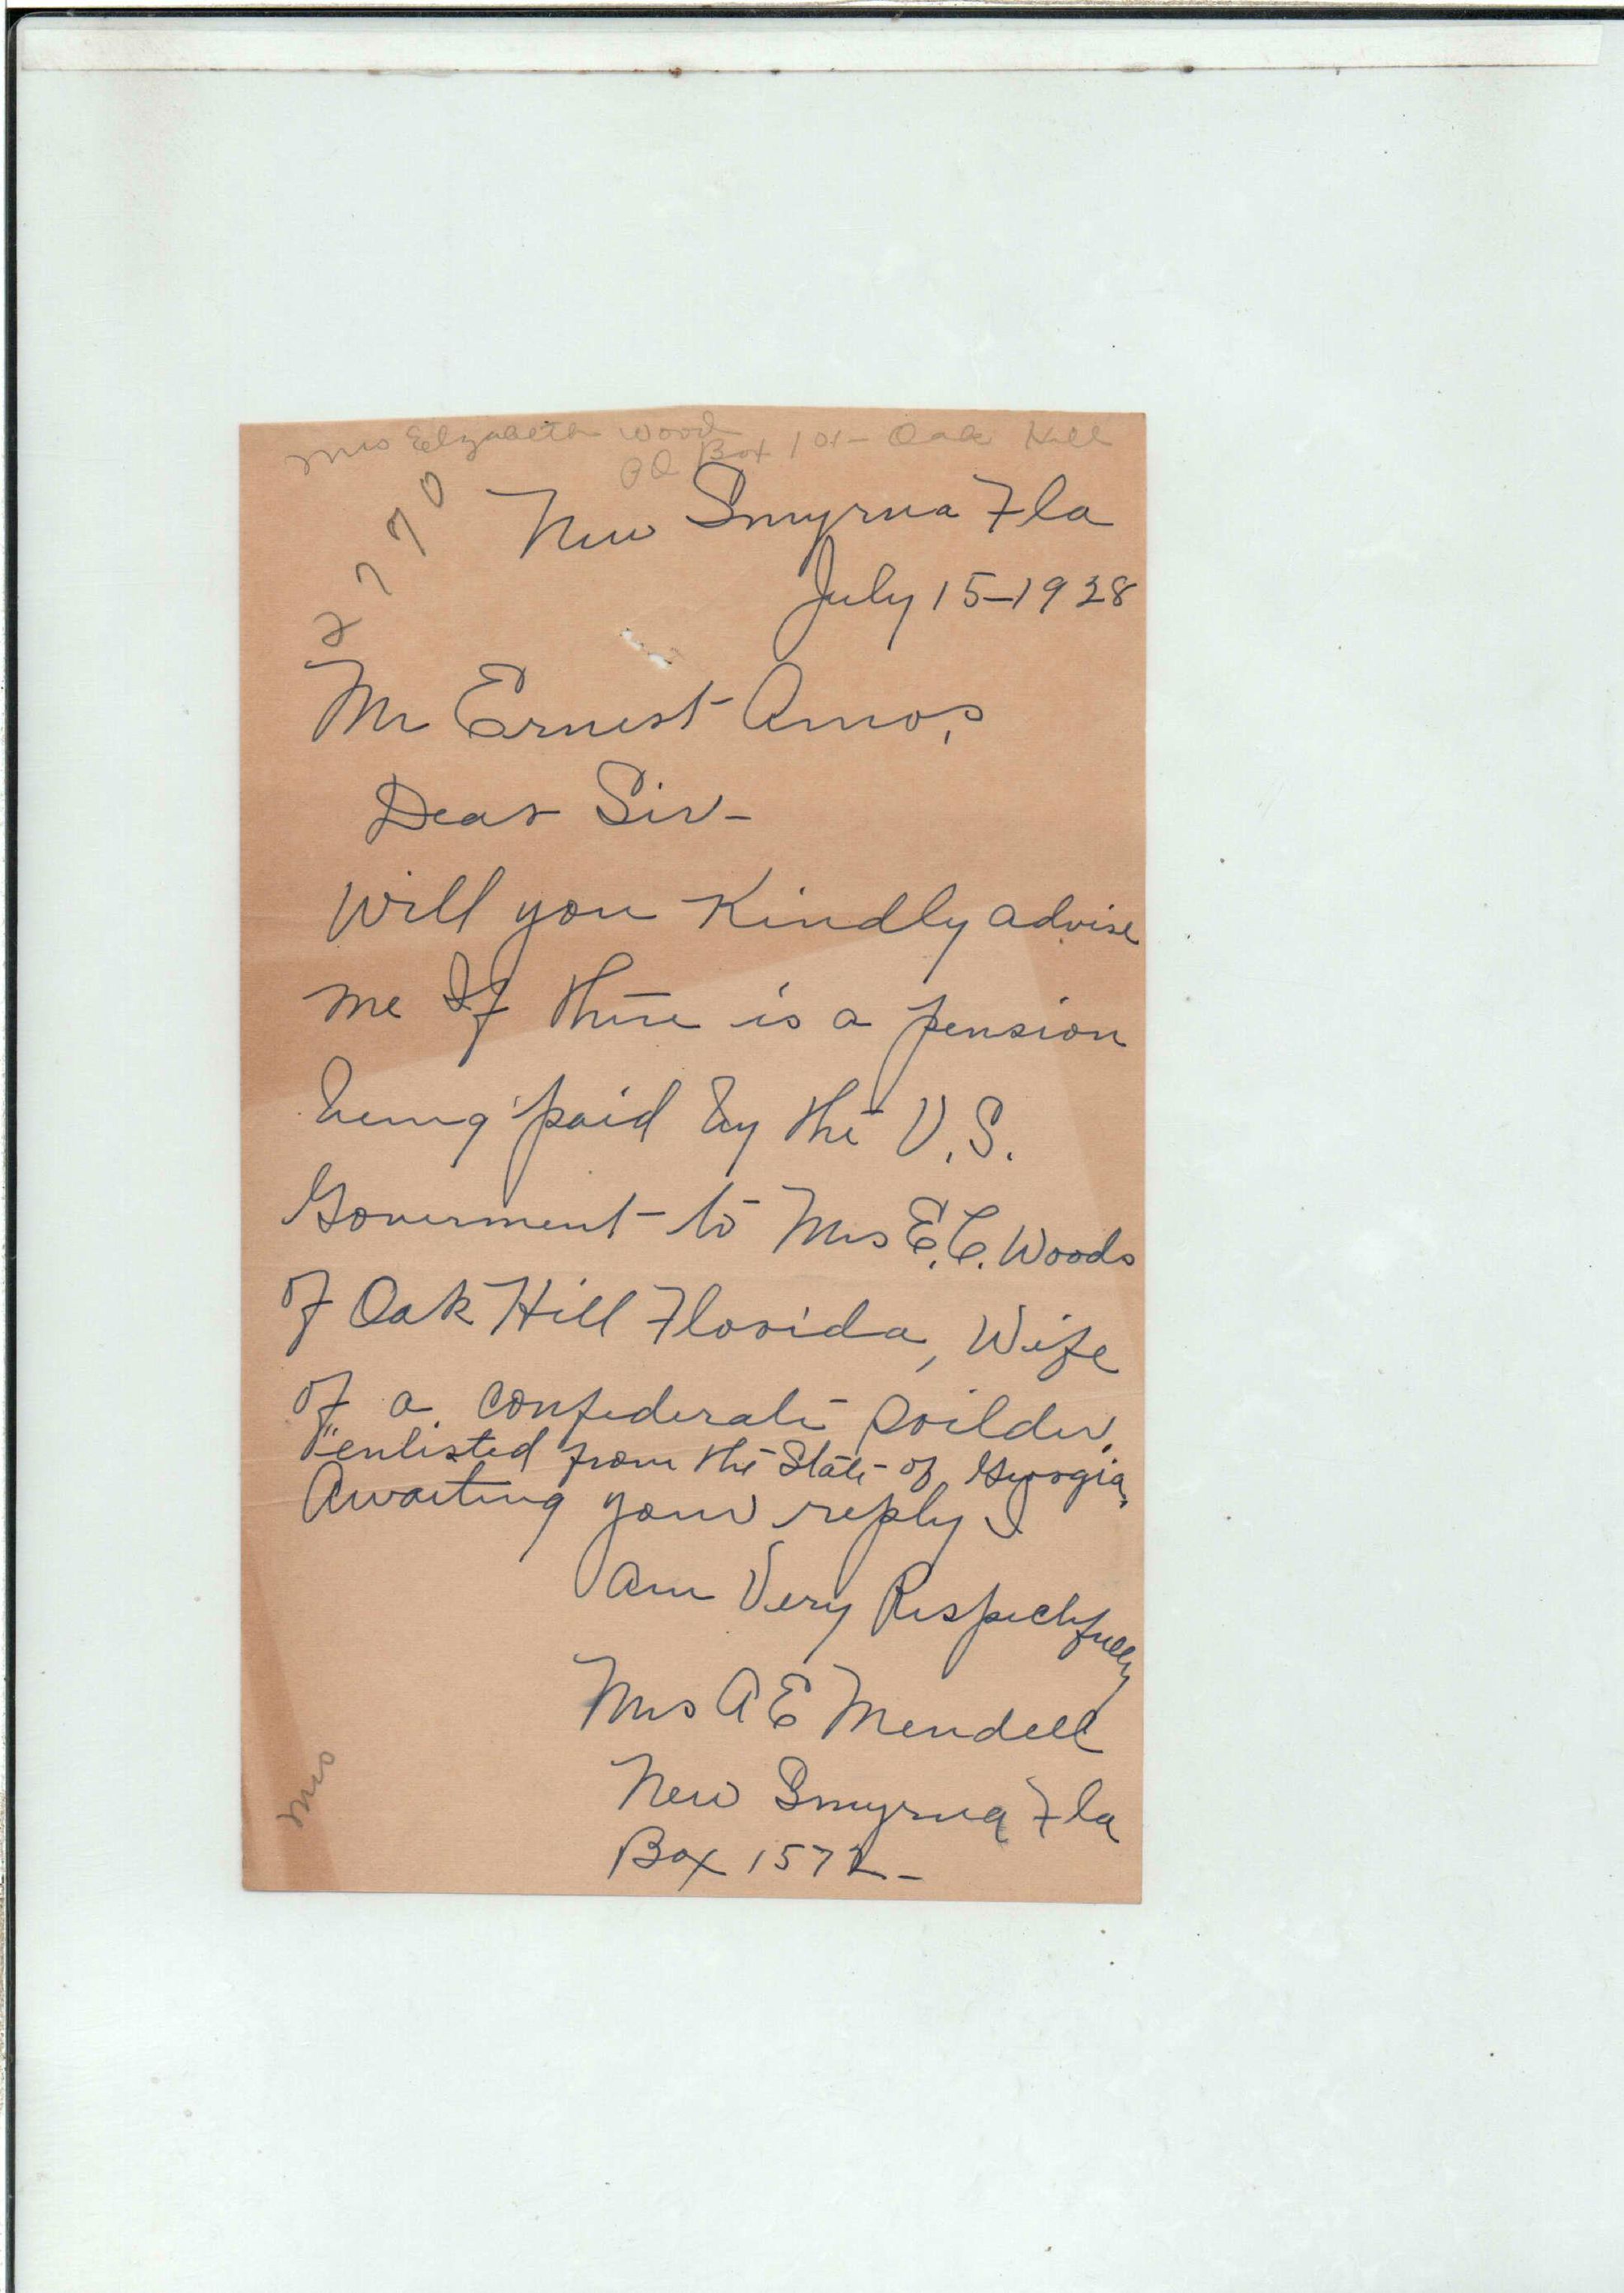 Mrs Elizabeth Wood
PO Box 101- Oak Hill
2770
New Smyrna Fla
July 15-1928
Mr Ernest Amos,
Dear Sir-
Will you Kindly advise
me If there is a pension
being paid by the U.S.
Goverment to Mrs E.C. Woods
of Oak Hill Florida, Wife
of a confederate soilder.
"enlisted from the State of Georgia,
Awaiting your reply I
am Very Respectfully
Mrs A E Mendell
New Smyrna Fla
Box 1572-
Mrs